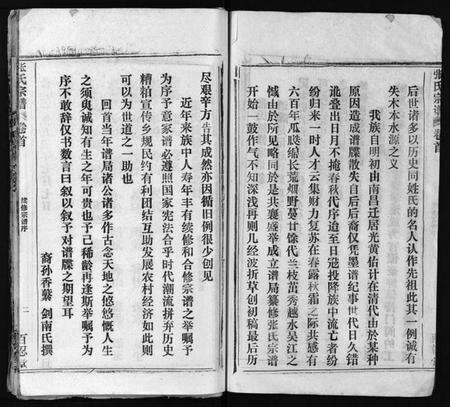 后世诸多以历史同姓氏的名人认作先祖此其一例诚有
失木本水源之义
我族自明初由南昌迁居光黄佑计在清代由於某种
原因造成谱牒散失自后后裔仅凭墨谱纪事世代日久错
讹叠出日月不掩春秋代序迨至日造投降族中流亡者纷
纷归来一时人才云集财力复苏在春露秋霜之际共感有
六百年瓜瓞绵长荒烟野蔓甘馀代兰枝茁秀越水吴江之
憾由於所见略同於是共襄盛举成立谱局纂修张氏宗谱
开始一鼓作气不知深浅再则几经波折草创初稿最后历
张氏宗谱 卷首
尽艰辛方告其成然亦因循旧例很少创见
近年来族中人寿年丰有续修和合修宗谱之举嘱予
为序予意家谱必遵照国家宪法合乎时代潮流拼弃历史
糟粕宣传乡规民约有利团结互助发展农村经济如此则
可以为世道之一助也
回首当年谱局诸公诸多作古念天地之悠悠慨人生
之须臾诚知有生之年可贵也予已稀龄再逢斯举嘱予为
序不敢辞仅书数言曰叙以叙予对谱牒之期望耳
裔孙香蘩 剑南氏撰
张氏宗谱 卷首
续修宗谱序
二
百忍堂